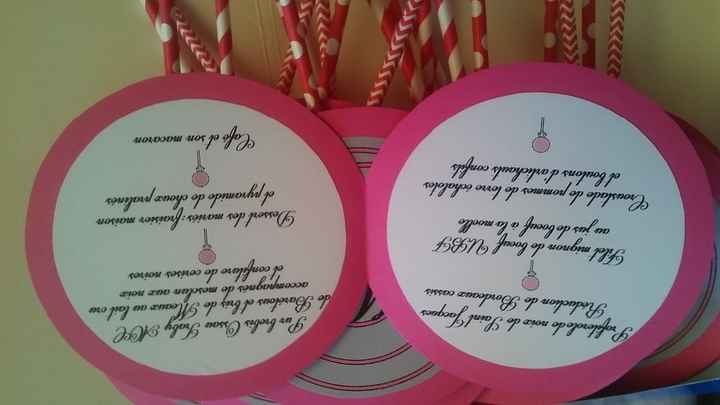 Profiterole de noix de Saint Jacques
Réduction de Bordeaux cassis
Filet mignon de boeuf VBF
au jus de boeuf à la moelle
Croustade de pommes de terre échalotes
et boutons d'artichauts confits
Pur brebis Ossau Iraty AOC
de et brie de Meaux au lait cru
accompagnés de mesclun aux noix
et confiture de cerises noires
Dessert des mariés : fraisier maison
et pyramide de choux pralinés
Café et son macaron